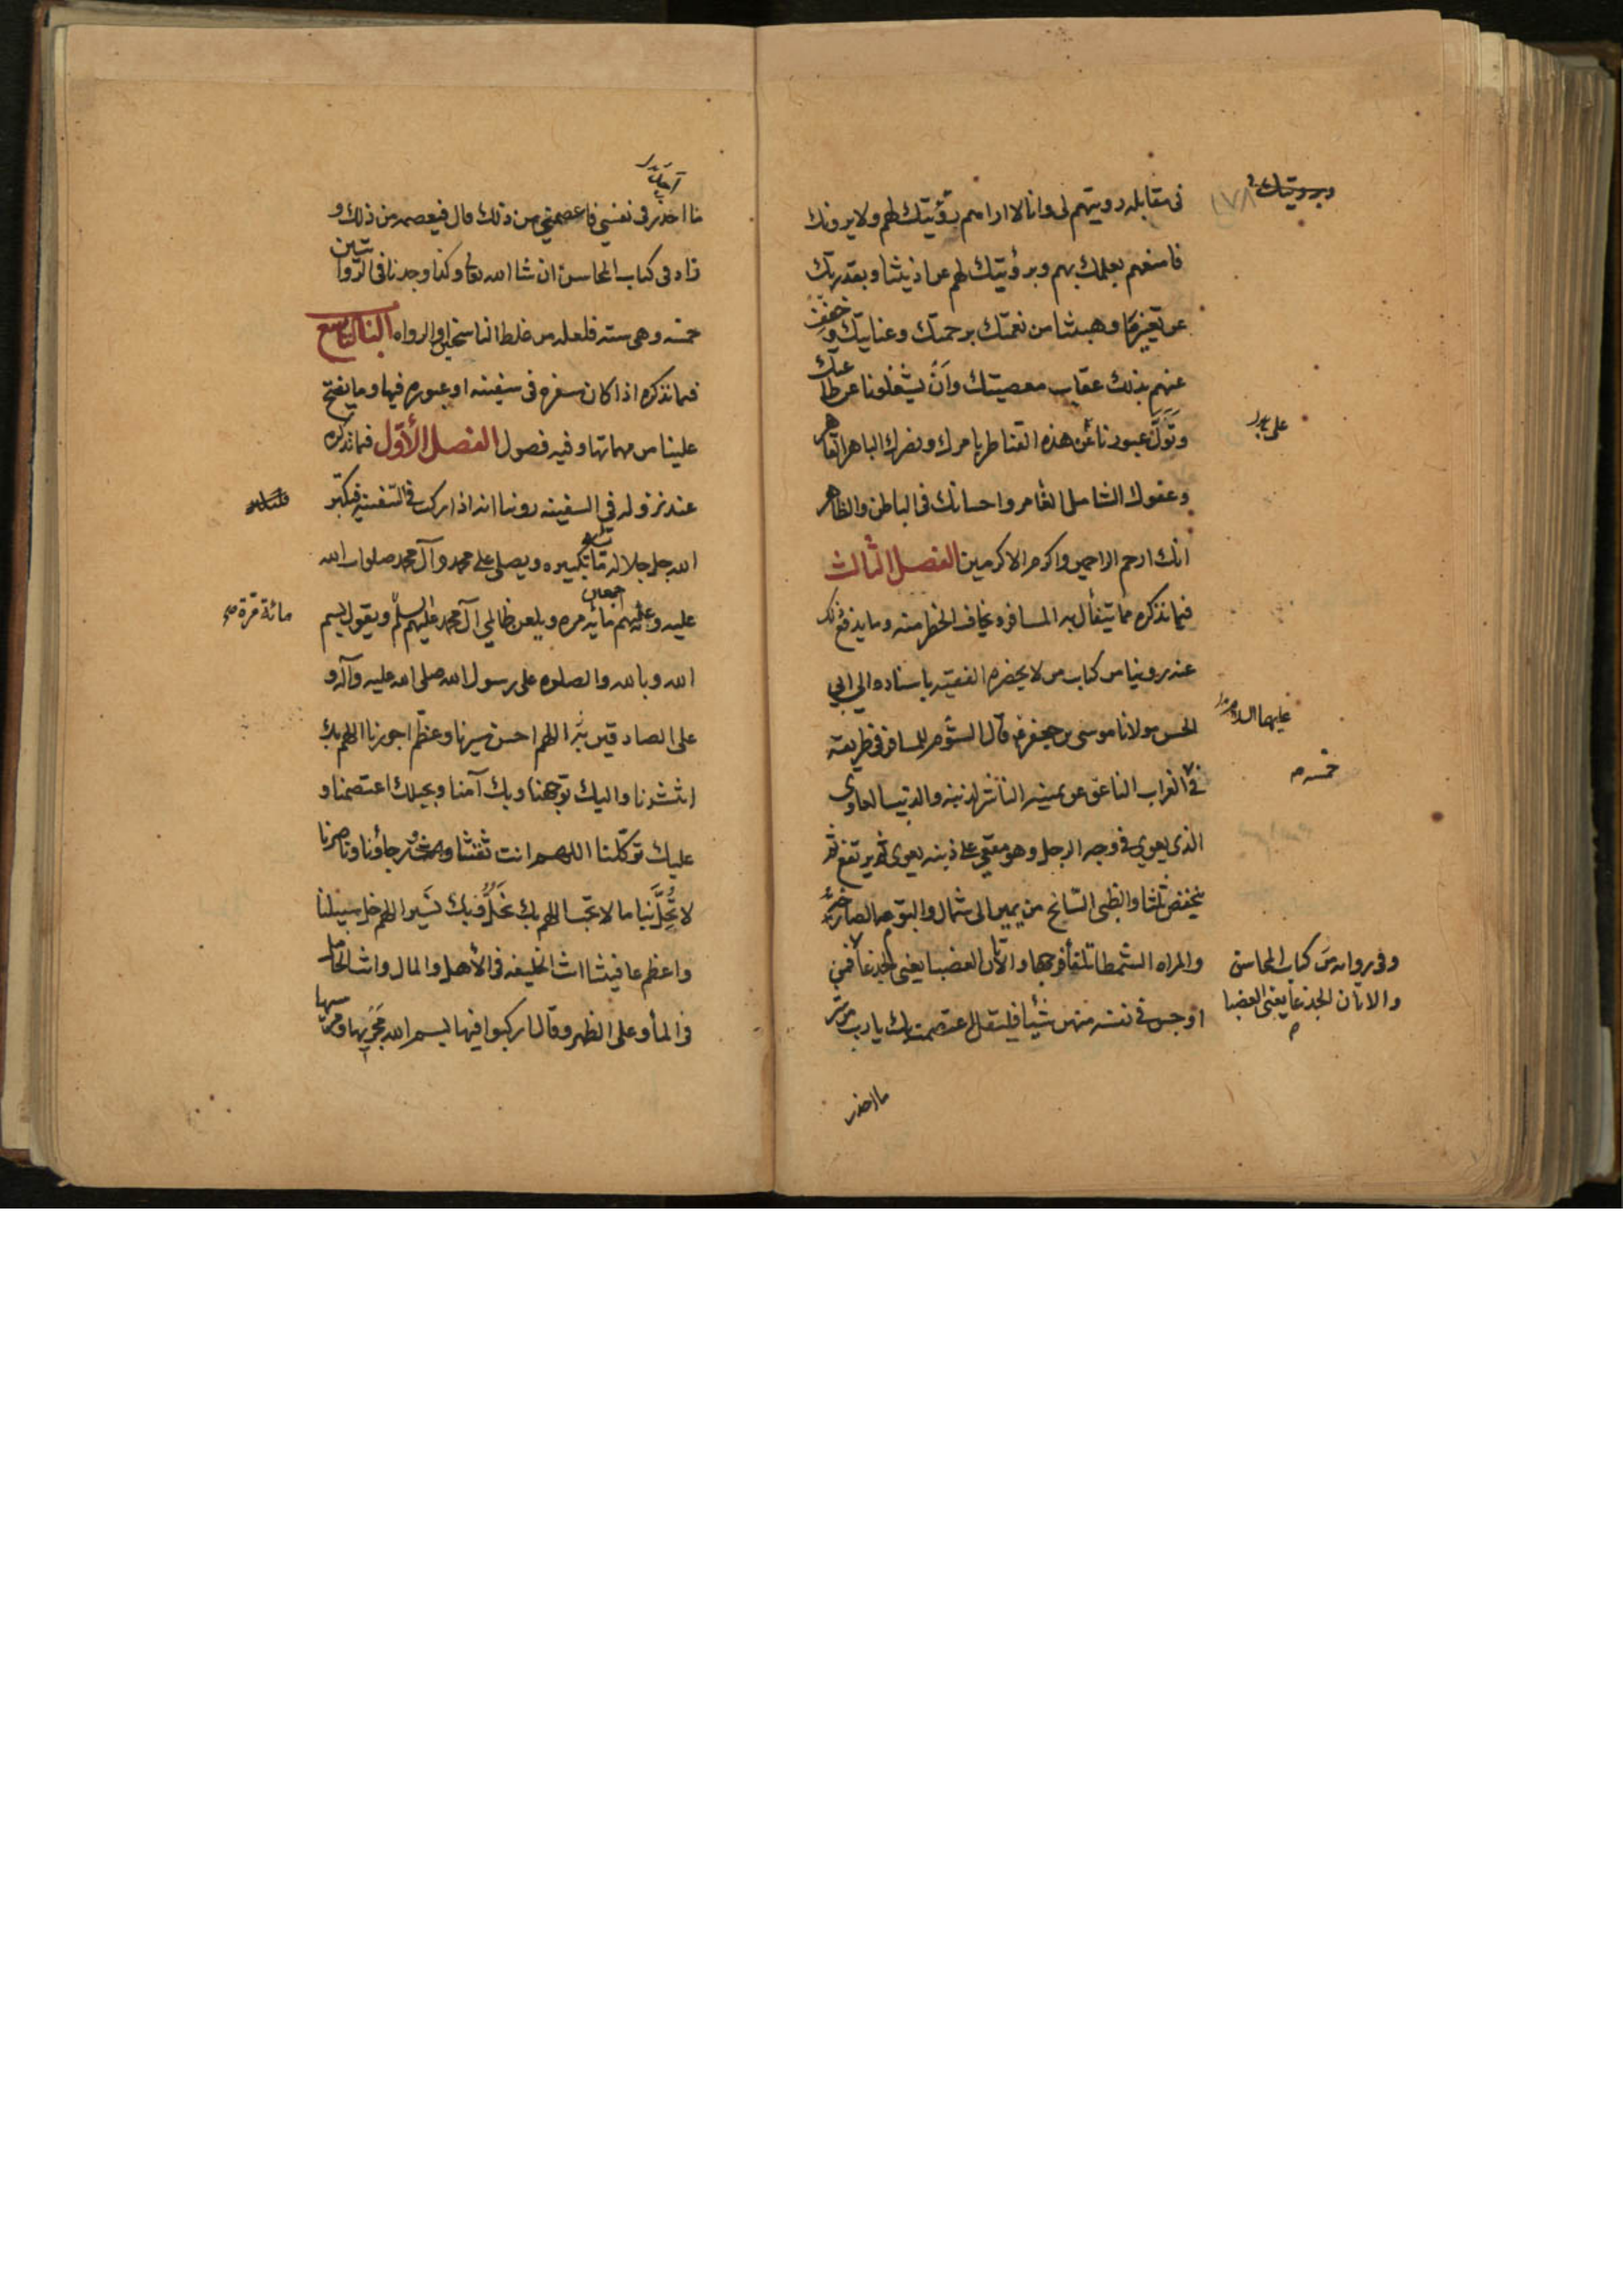 في مقابله رويتهم لي وانا لا اراهم برؤيتك لهم ولا يرونك
فامنعهم بعلمك بهم وبرؤيتك لهم عن اذيتنا وبقدرتك
عن تغييرها وهبتنا من نعمتك برحمتك وعنايتك وخفف
عنهم بذلك عقاب معصيتك وان يشغلونا عن طاعتك
وتول عبورنا على هذه القناطر بامرك ونصرك الباهر القاهر
وعفوك الشامل الغامر واحسانك في الباطن والظاهر
انك ارحم الراحمين واكرم الاكرمين الفصل الثالث
فيما نذكره مما يتفأل به المسافر ويخاف الخطر منه وما يدفع ذلك
عنه روينا من كتاب من لا يحضره الفقيه باسناده الى ابي
الحسن مولانا موسى بن جعفر قال الشؤم للمسافر في طريقه
في الغراب الناعق عن يمينه الناشر لذنبه والذئب العاوي
الذي يعوي في وجه الرجل وهو مقعي على ذنبه يعوي ثم يرتفع ثم
ينخفض ثلثا والظبي السانح من يمين الى شمال والبومه الصارخه
والمراه الشمطا تلقأ فرجها والاتان العضبا يعني الجدعا فمن
اوجس في نفسه منهن شيأ فليقل اعتصمت بك يا رب من شر
ما احذر
على
عليهما السلام
خمسه
وفي روايه من كتاب المحاسن
والاتان الجدعا يعني العضبا
١٧٨
ما احذر في نفسي فاعصمني من ذلك قال فيعصم من ذلك و
زاد في كتاب المحاسن ان شا الله تعالى وكذا وجدنا في الروايتين
خمسه وهي سته فلعله من غلط الناسخين او الرواه الباب التاسع
فيما نذكره اذا كان سفره في سفينه او عبوره فيها وما يفتح
علينا من مهماتها وفيه فصول الفصل الأول فيما نذكره
عند نزوله في السفينه روينا انه اذا ركب في السفينه فيكبر
الله جل جلاله مائه تكبيره ويصلي على محمد وآل محمد صلوات الله
عليه وعليهم مائه مره ويلعن ظالمي آل محمد عليهم السلم ويقول بسم
الله وبالله والصلوه على رسول الله صلى الله عليه وآله و
على الصادقين اللهم احسن مسيرنا وعظم اجورنا اللهم بك
انتشرنا واليك توجهنا وبك آمنا وبحبلك اعتصمنا و
عليك توكلنا اللهم انت ثقتنا ورجاؤنا وناصرنا
لا تحل بنا ما لا نحب اللهم بك نحل وبك نسير اللهم خل سبيلنا
واعظم عافيتنا انت الخليفه في الأهل والمال وانت الحامل
في المأ وعلى الظهر وقال اركبوا فيها بسم الله مجريها ومرسيها
مائة مرة صح